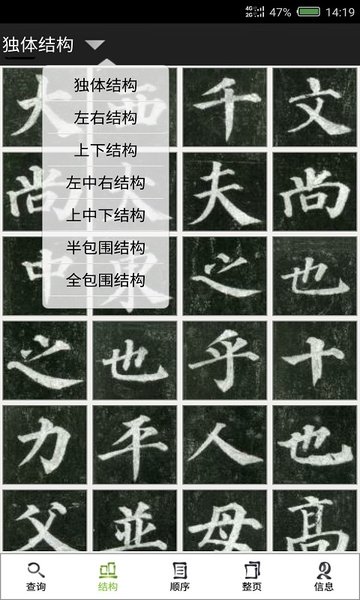 4G 2G 47% 14:19
独体结构
独体结构
左右结构
上下结构
左中右结构
上中下结构
半包围结构
全包围结构
大 西 千 文
尚 大 夫 尚
中 之 也
之 也 乎 十
力 平 人 也
父 並 母 高
查询 结构 顺序 整页 信息